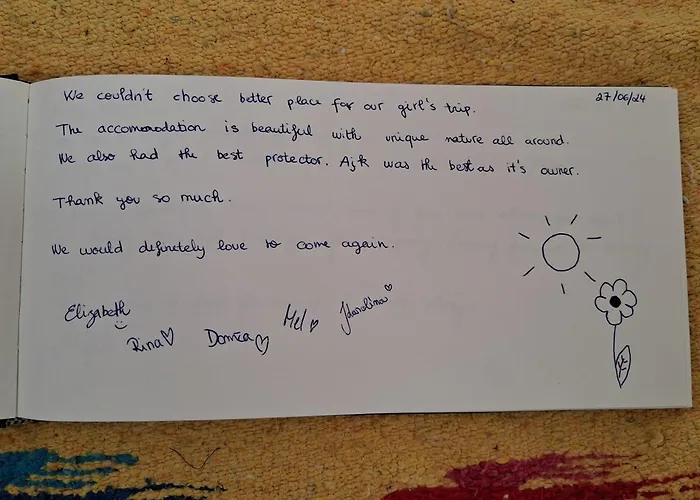 27/06/24
We couldn't choose better place for our girl's trip.
The accomorodation is beautiful with unique nature all around.
We also had the best protector. Ajk was the best as it's owner.
Thank you so much.
We would definetely love to come again.
Elizabeth
Rina
Mel
Karolina